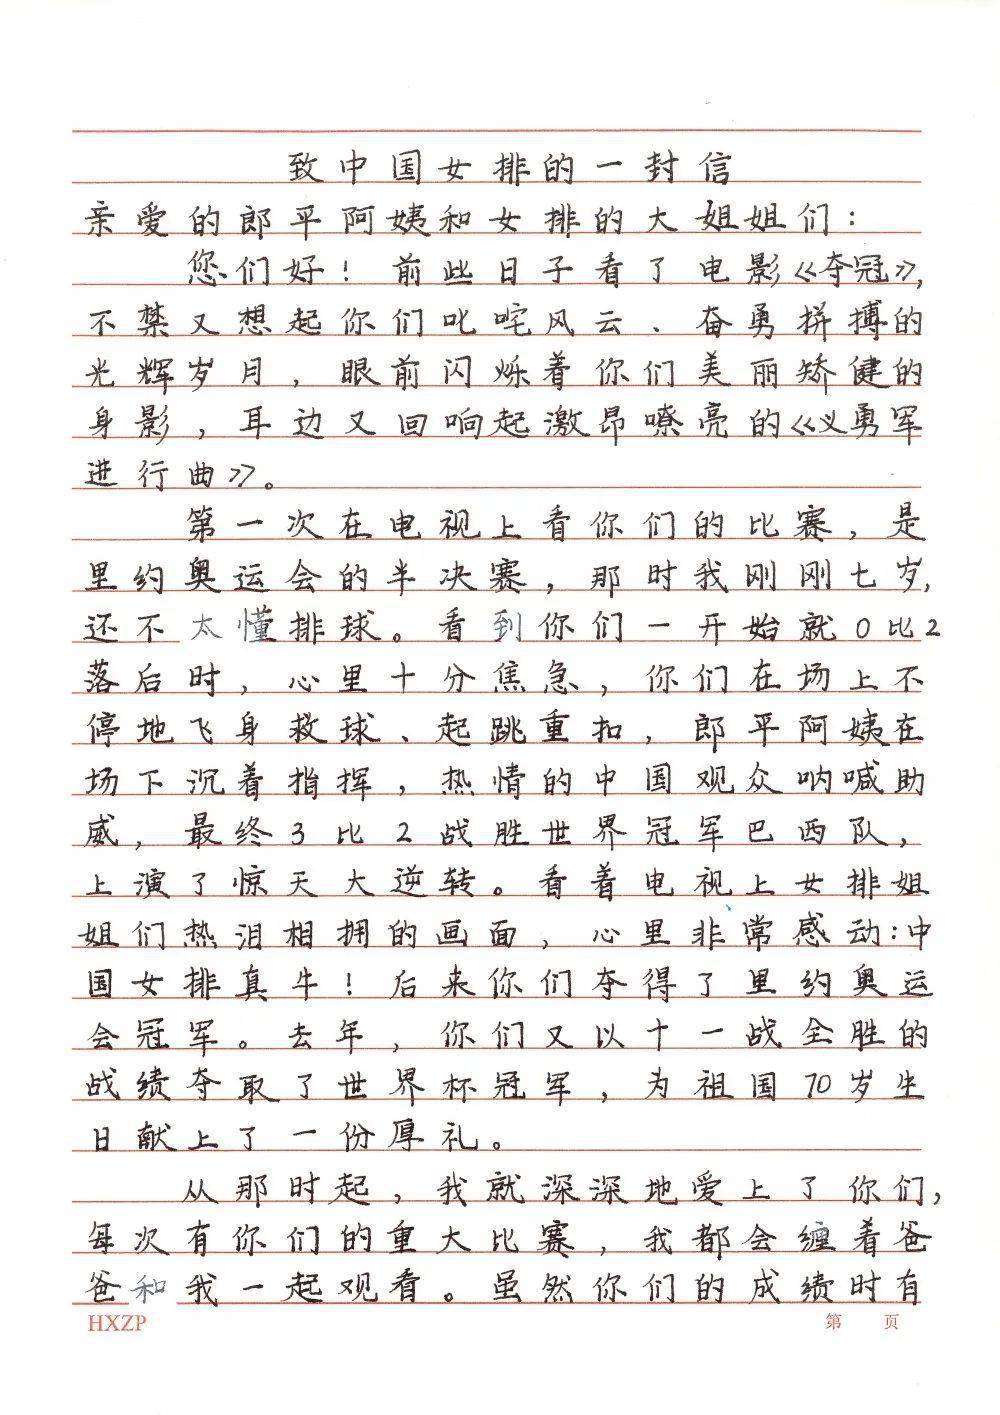 致中国女排的一封信
亲爱的郎平阿姨和女排的大姐姐们：
您们好！前些日子看了电影《夺冠》，
不禁又想起你们叱咤风云、奋勇拼搏的
光辉岁月，眼前闪烁着你们美丽矫健的
身影，耳边又回响起激昂嘹亮的《义勇军
进行曲》。
第一次在电视上看你们的比赛，是
里约奥运会的半决赛，那时我刚刚七岁，
还不太懂排球。看到你们一开始就0比2
落后时，心里十分焦急，你们在场上不
停地飞身救球、起跳重扣，郎平阿姨在
场下沉着指挥，热情的中国观众呐喊助
威，最终3比2战胜世界冠军巴西队，
上演了惊天大逆转。看着电视上女排姐
姐们热泪相拥的画面，心里非常感动：中
国女排真牛！后来你们夺得了里约奥运
会冠军。去年，你们又以十一战全胜的
战绩夺取了世界杯冠军，为祖国70岁生
日献上了一份厚礼。
从那时起，我就深深地爱上了你们，
每次有你们的重大比赛，我都会缠着爸
爸和我一起观看。虽然你们的成绩时有
HXZP 第 页